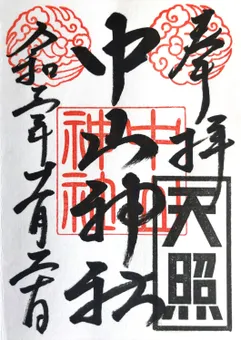 奉拝
天照
中山神社
中山神社
令和年月二十日